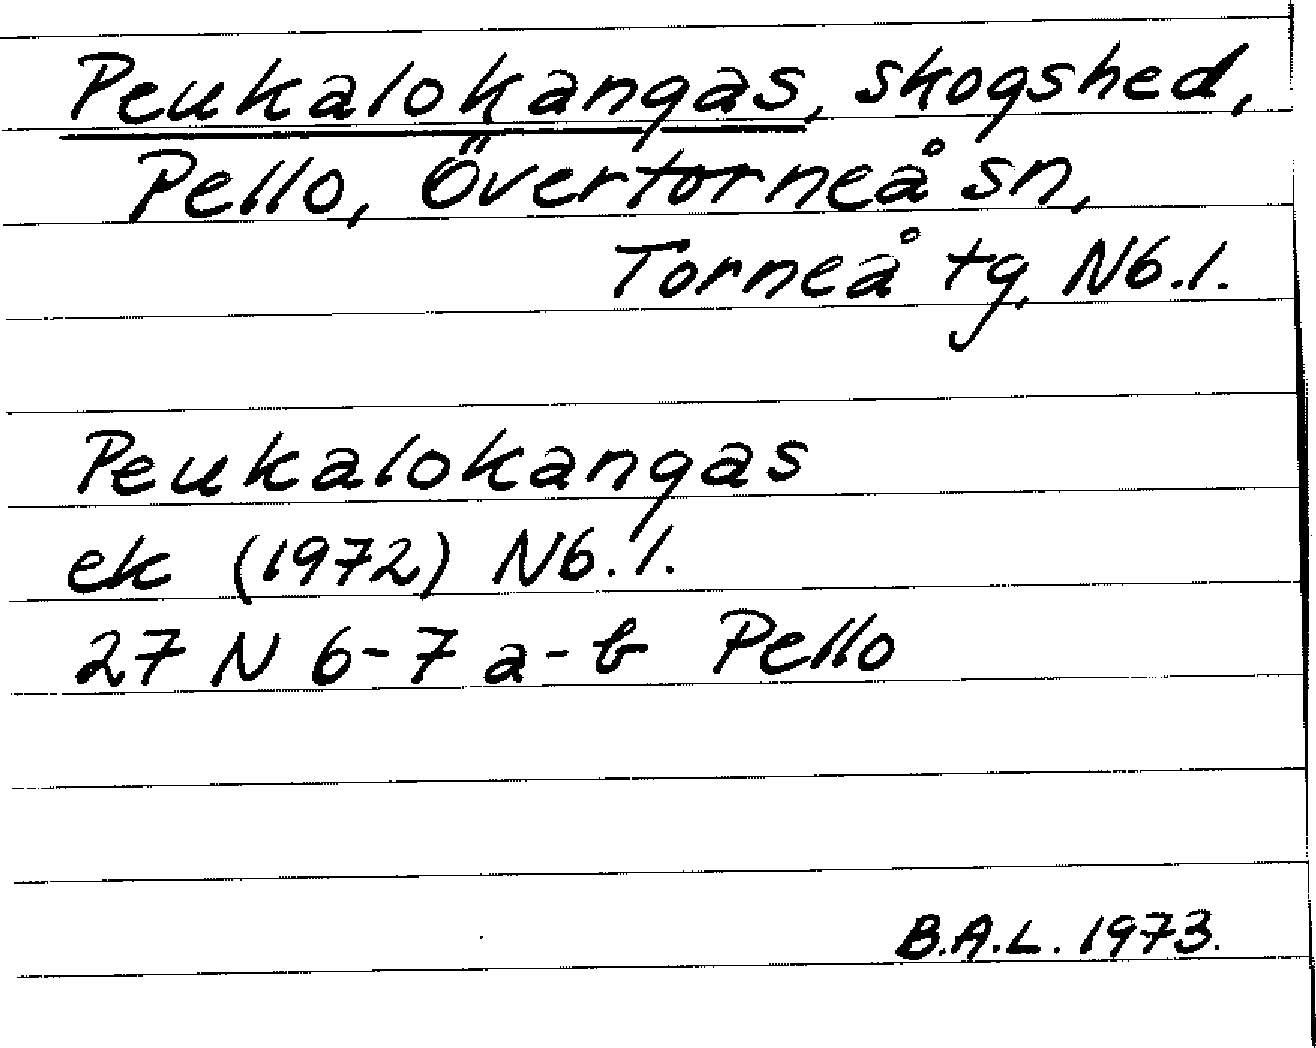 Peukalokangas, skogshed,
Pello, Övertorneå sn,
Torneå tg, Nb.l.
Peukalokangas
ek (1972) Nb.l.
27 N 6-7 a-b Pello
B.A.L. 1973.